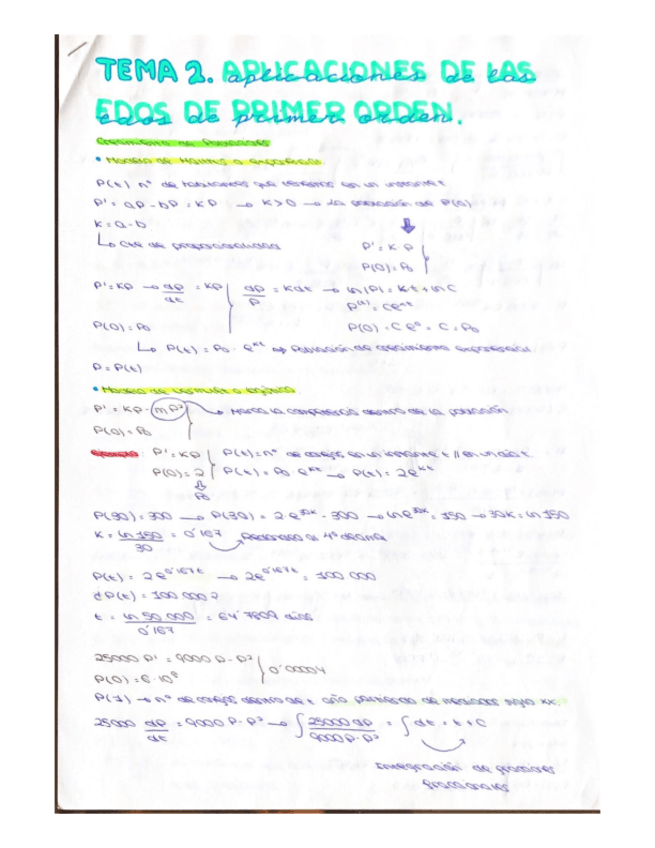 TEMA 2. APLICACIONES DE LAS
EDOS DE PRIMER ORDEN.
Crecimiento de Poblaciones
• Modelo de Malthus o exponencial.
P(t) nº de habitantes que tenemos en un instante t
P' = aP - bP = KP → K>0 → La población de P(0)
K = a - b
↳ cte de proporcionalidad
P' = K P
P(0) = P₀
P' = KP → dP/dt = KP
dP/P = Kdt → ln(P) = Kt + ln C
P(t) = Ce^kt
P(0) = P₀
P(0) = C e⁰ = C = P₀
↳ P(t) = P₀ · e^kt ⇒ Población de crecimiento exponencial
P = P(t)
• Modelo de Verhulst o logístico.
P' = KP - mP² → Marca la competencia dentro de la población
P(0) = P₀
Ejemplo: P' = KP P(t) = nº de conejos en un instante t // en un día t.
P(0) = 2 P(t) = P₀ · e^kt → P(t) = 2e^kt
P₀
P(30) = 300 → P(30) = 2·e^30k = 300 → ln e^30k = 150 → 30K = ln 150
K = ln 150/30 = 0'167 Redondeo al 4º decimal
P(t) = 2e^0'167t → 2e^0'167t = 100 000
¿P(t) = 100 000?
t = ln 50 000/0'167 = 64'7809 días
25000 P' = 9000 P - P² 0'00004
P(0) = 6·10⁸
P(1) → nº de conejos dentro de t año partiendo de mediados siglo XX.
25000 dP/dt = 9000 P - P² → ∫ 25000 dP/9000P - P² = ∫ dt = t + C
Integración de funciones
fraccionales